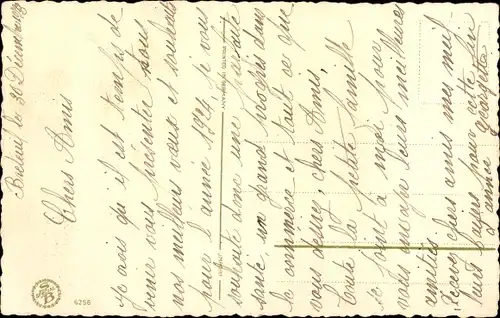 Breteuil le 30 Décembre
Chers Amis
Je crois qu'il est temps de
venir vous présenter tous
nos meilleurs vœux et souhaits
pour l'année 1924, je vous
souhaite donc une parfaite
santé, un grand prospère dans
le commerce et tout ce que
vous désirez, chers Amis,
Toute la petite famille
se joint à moi pour
vous envoyer leurs meilleures
amitiés
Recevez chers amis mes meil
leurs pour cette fin
d'année
6256